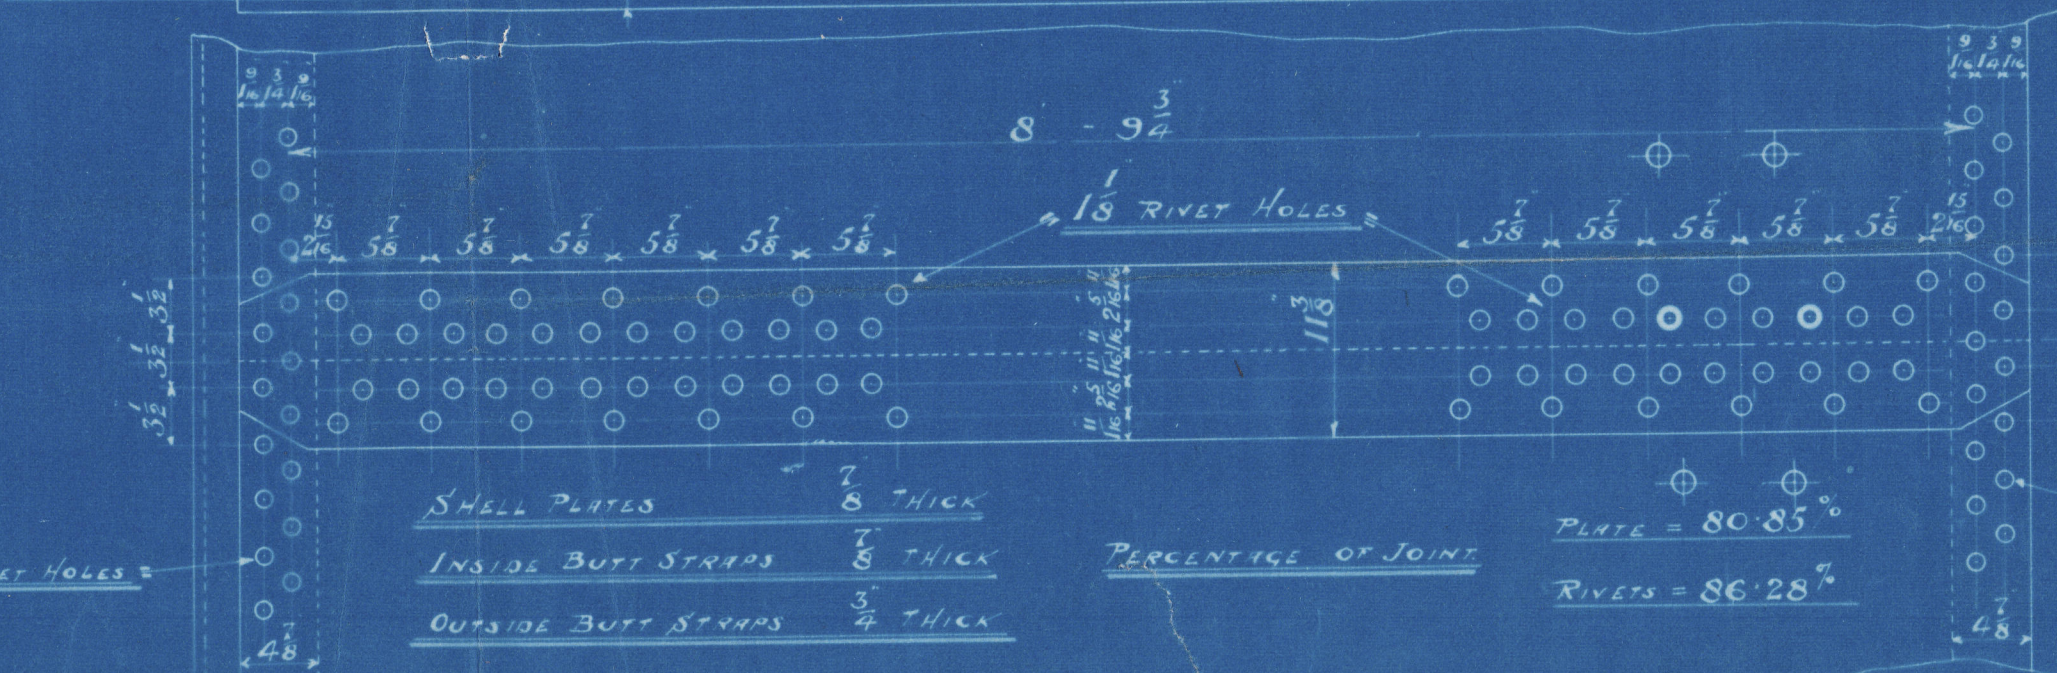 9/16 3/4 9/16
9/16 3/4 9/16
8' - 9 3/4"
1 1/8" RIVET HOLES
2 15/16" 5 7/8" 5 7/8" 5 7/8" 5 7/8" 5 7/8" 5 7/8"
5 7/8" 5 7/8" 5 7/8" 5 7/8" 5 7/8" 2 15/16"
3 1/2" 3 1/2" 3 1/2"
11 3/8"
SHELL PLATES 7/8" THICK
INSIDE BUTT STRAPS 7/8" THICK
OUTSIDE BUTT STRAPS 3/4" THICK
PERCENTAGE OF JOINT
PLATE = 80·85%
RIVETS = 86·28%
ET HOLES =
4 7/8"
4 7/8"